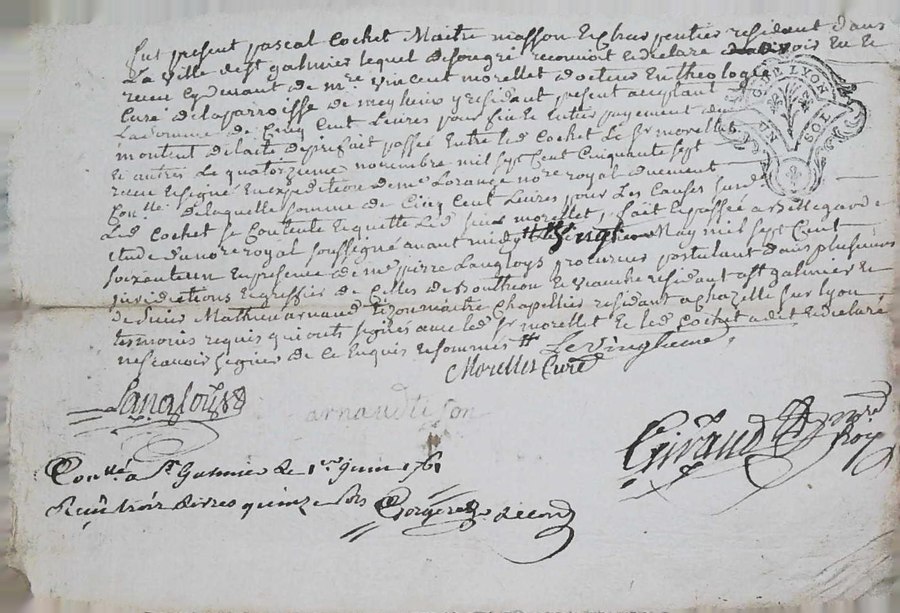 fut present pascal Cochet Maitre masson Et charpentier residant dans
La ville de st galmier lequel de son gré reconnoit Et declare avoir Eu Et
receu cy devant de mre Vincent morellet docteur En theologie
Curé de la parroisse de meyheux y residant present acceptant
La Somme de Cinq Cent Livres pour fin Et Entier payement du
montent de lacte de prisfait passée Entre led Cochet Led sr morellet
Et autres Le quatorzieme novembre mil sept Cent Cinquante sept
receu Et signé En expedition de me Lorance nore royal duement
Conllé De laquelle somme de Cinq Cent Livres pour Les Causes susd
Led Cochet se Contente Et quitte Led sieur morellet fait Et passée a Bellegarde
Etude du nore royal soussigné avant midy Le vingtieme May mil sept Cent
soixanteun En presence de me pierre Langloys procureur postulant dans plusieurs
jurisdictions Et greffier de Celles de Bouthéon Et Veauche residant a st galmier Et
de sieur Mathieu arnaud Tizon maitre Chapellier residant a chazelle sur Lyon
temoins requis qui ont signés avec led sr morellet Et led Cochet a dit Et declaré
ne scavoir signer de ce Enquis Et sommés Le vingtieme
Morellet Curé
Langloys
arnaud tison
Giraud nore Roy
Conllé a St Galmier Le 1er juin 1761
Recu trois livres quinze sols
G DE LYON
SOL